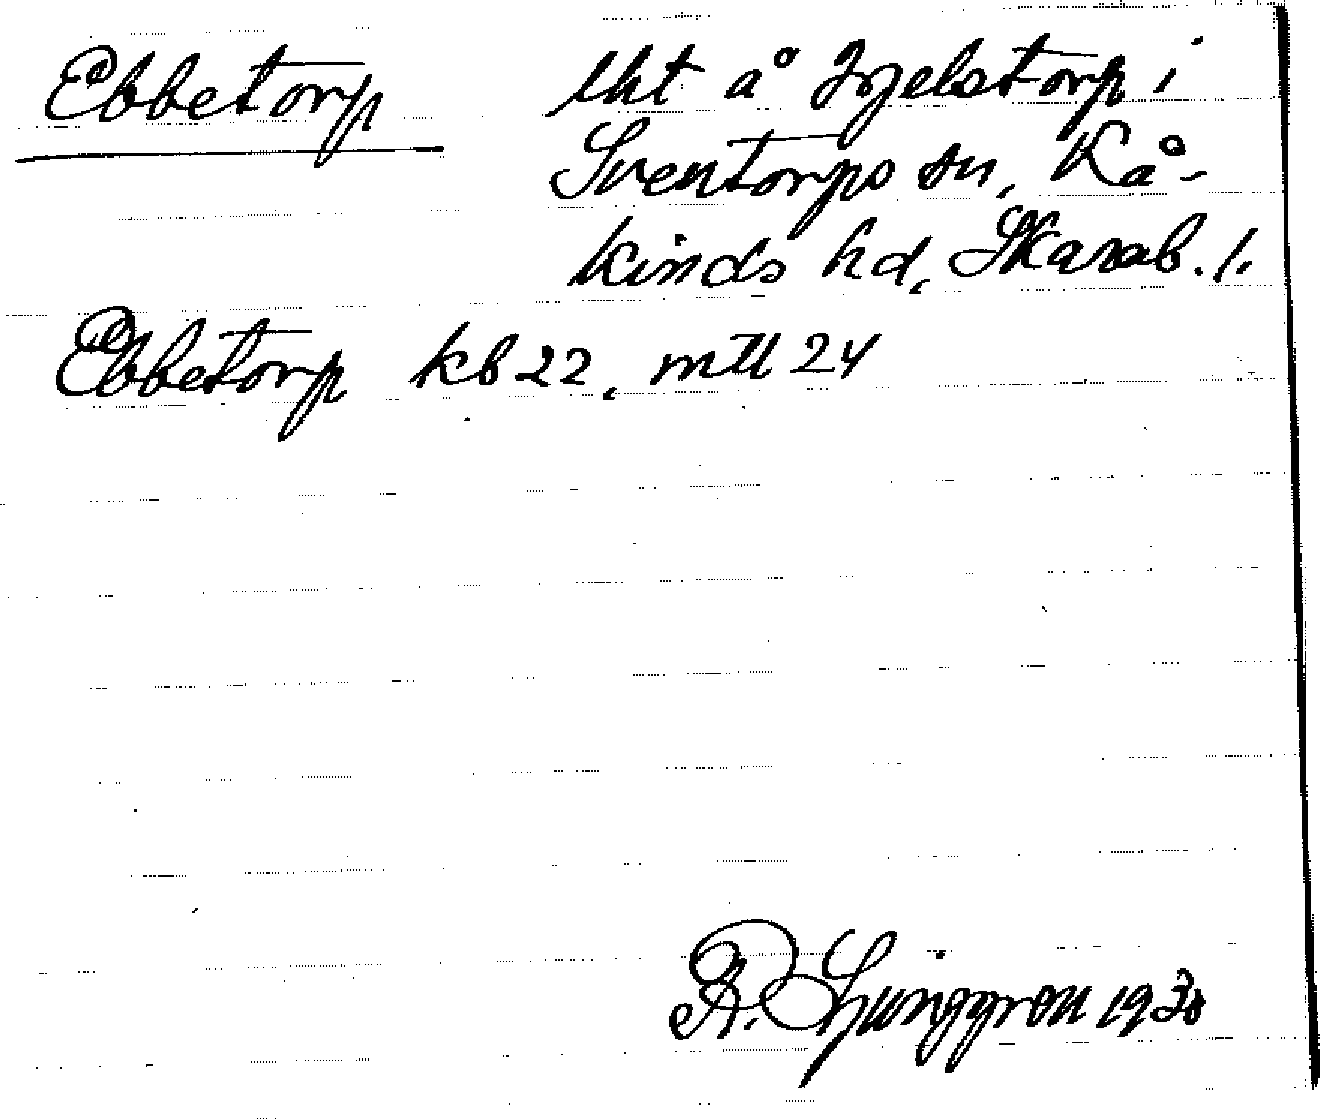 Ebbetorp lht å Igelstorp i
Sventorps sn, Kå-
kinds hd, Skarab. l.
Ebbetorp kb 22, mtl 24
R. Ljunggren 1930